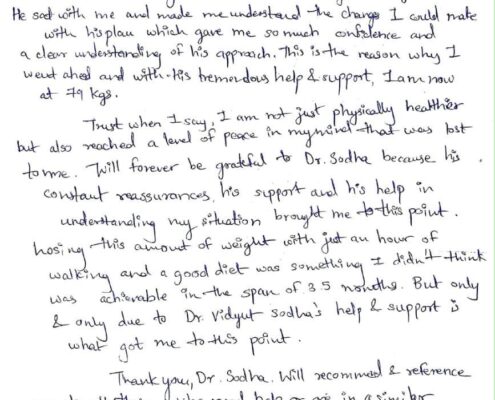 He sat with me and made me understand the change I could make
with his plan which gave me so much confidence and
a clear understanding of his approach. This is the reason why I
went ahed and with his tremendous help & support, I am now
at 79 kgs.
Trust when I say, I am not just physically healthier
but also reached a level of peace in my mind that was lost
to me. Will forever be grateful to Dr. Sodha because his
constant reassurances, his support and his help in
understanding my situation brought me to this point.
Losing this amount of weight with just an hour of
walking and a good diet was something I didn't think
was achievable in the span of 3.5 months. But only
& only due to Dr. Vidyut Sodha's help & support is
what got me to this point.
Thank you, Dr. Sodha. Will recommed & reference